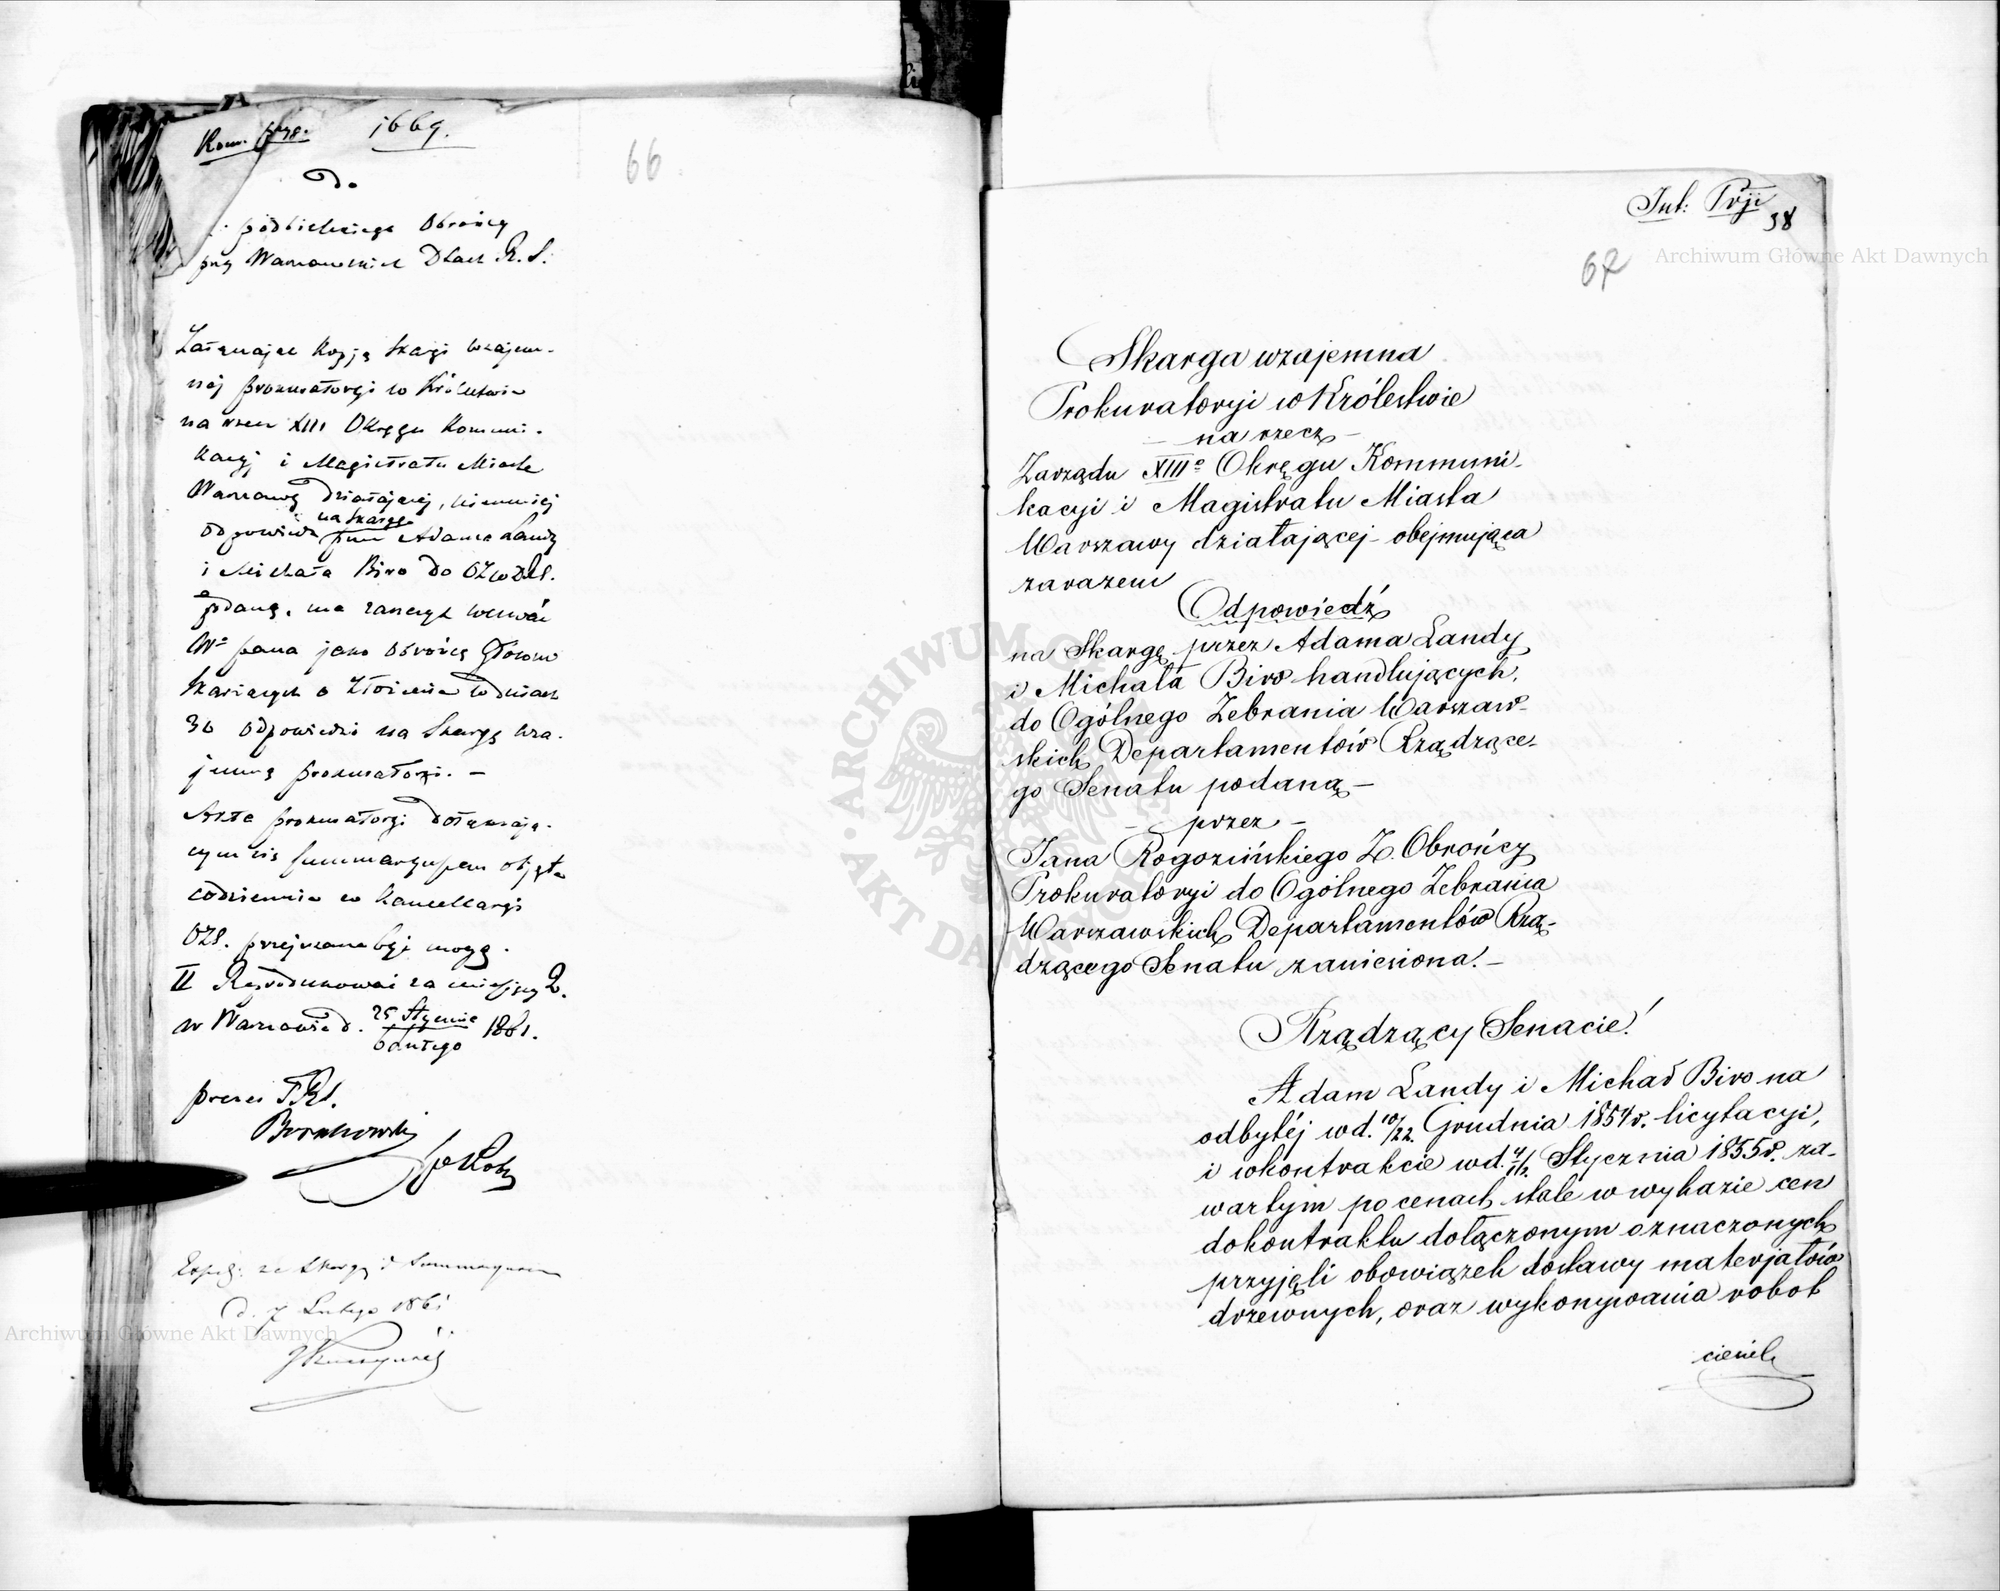 1669.
66
Do
Obrońcy
przy Warszawskich D[tach] R. S.
Załączając kopję skargi wzajem-
néj prokuratoryi w Królestwie
na rzecz XIII Okręgu Kommuni-
kacyj i Magistratu Miasta
Warszawy działającej, niemniej
na skargę
odpowiedź Adama Landy
i Michała Biro do OZWDRS.
podaną, ma zaszczyt wezwać
Wo pana jako obrońcę
skarżących o złożenie w dniach
30 odpowiedzi na skargę wza-
jemną prokuratoryi. —
Akta prokuratoryi dołączają-
cym się summaryuszem objęte
codziennie w kancellaryi
OZS. przejrzane być mogą.
II
w Warszawie d. 25 Stycznia 1861.
6 Lutego
prezes
ze skargą i Summaryuszem
d. 7 Lutego 1861
67
38
Skarga wzajemna
Prokuratoryi w Królestwie
— na rzecz —
Zarządu XIIIo Okręgu Kommuni-
kacyi i Magistratu Miasta
Warszawy działającej — obejmująca
zarazem
Odpowiedź
na Skargę przez Adama Landy
i Michała Biro handlujących,
do Ogólnego Zebrania Warszaw-
skich Departamentów Rządzące-
go Senatu podaną —
— przez —
Jana Rogozińskiego Z. Obrońcy
Prokuratoryi do Ogólnego Zebrania
Warszawskich Departamentów Rzą-
dzącego Senatu zaniesiona. —
Rządzący Senacie!
Adam Landy i Michał Biro na
odbytéj w d. 10/22. Grudnia 1854 r. licytacyi,
i w kontrakcie w d. 4/16 Stycznia 1855 r. za-
wartym po cenach stale w wykazie cen
do kontraktu dołączonym oznaczonych
przyjęli obowiązek dostawy materjałów
drzewnych, oraz wykonywania robot
ciesiel
Archiwum Główne Akt Dawnych
Archiwum Główne Akt Dawnych
ARCHIWUM GŁÓWNE AKT DAWNYCH